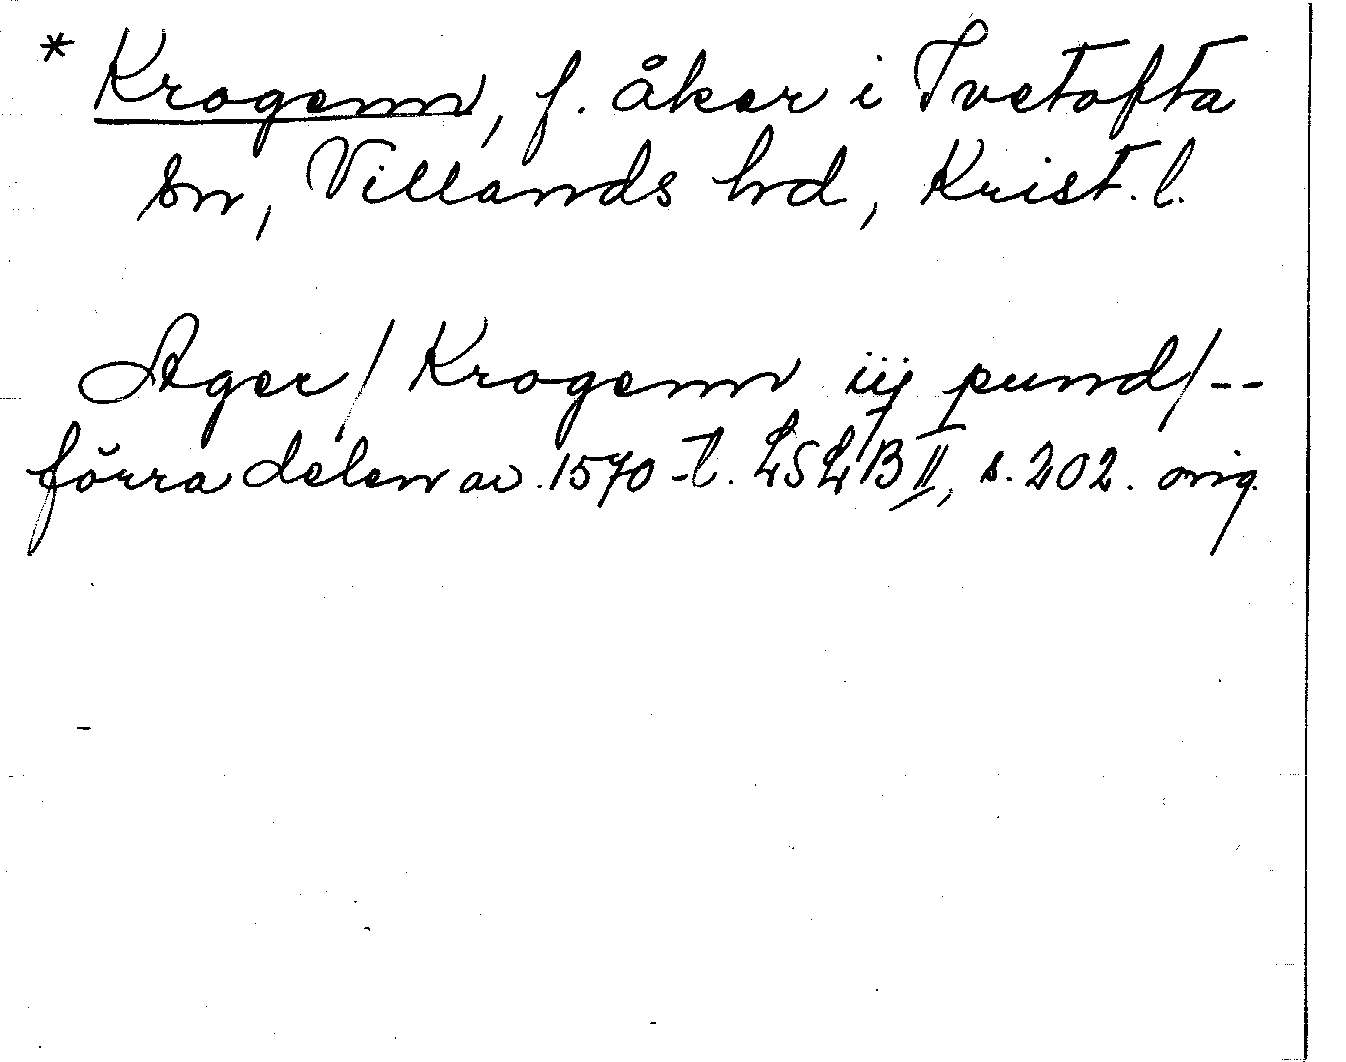 * Krogenn, f. åker i Ivetofta
sn, Villands hd, Krist. l.
Ager/ Krogenn iij pund/--
förra delen av 1570-t. LSLB II, s. 202. orig.